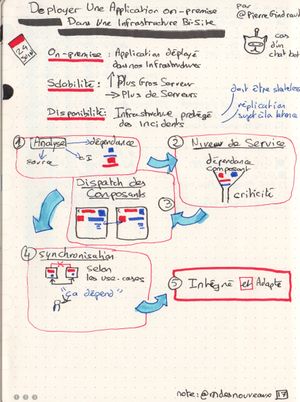 Déployer Une Application on-premise
Dans Une Infrastructure Bi-Site
par
@PierreGindraud
24
cas
d'un
chat bot
On-premise : Application déployé
dans nos Infrastructures
Scalabilité : Plus Gros Serveur
→ Plus de Serveurs
doit être stateless
réplication
Disponibilité : Infrastructure protégé
des incidents
1 Analyse
dépendance
source
2 Niveau de Service
dépendance
composant
criticité
Dispatch des
Composants
3
4 Synchronisation
selon
les use-cases
"ça dépend"
5 Intégré et Adapté
17